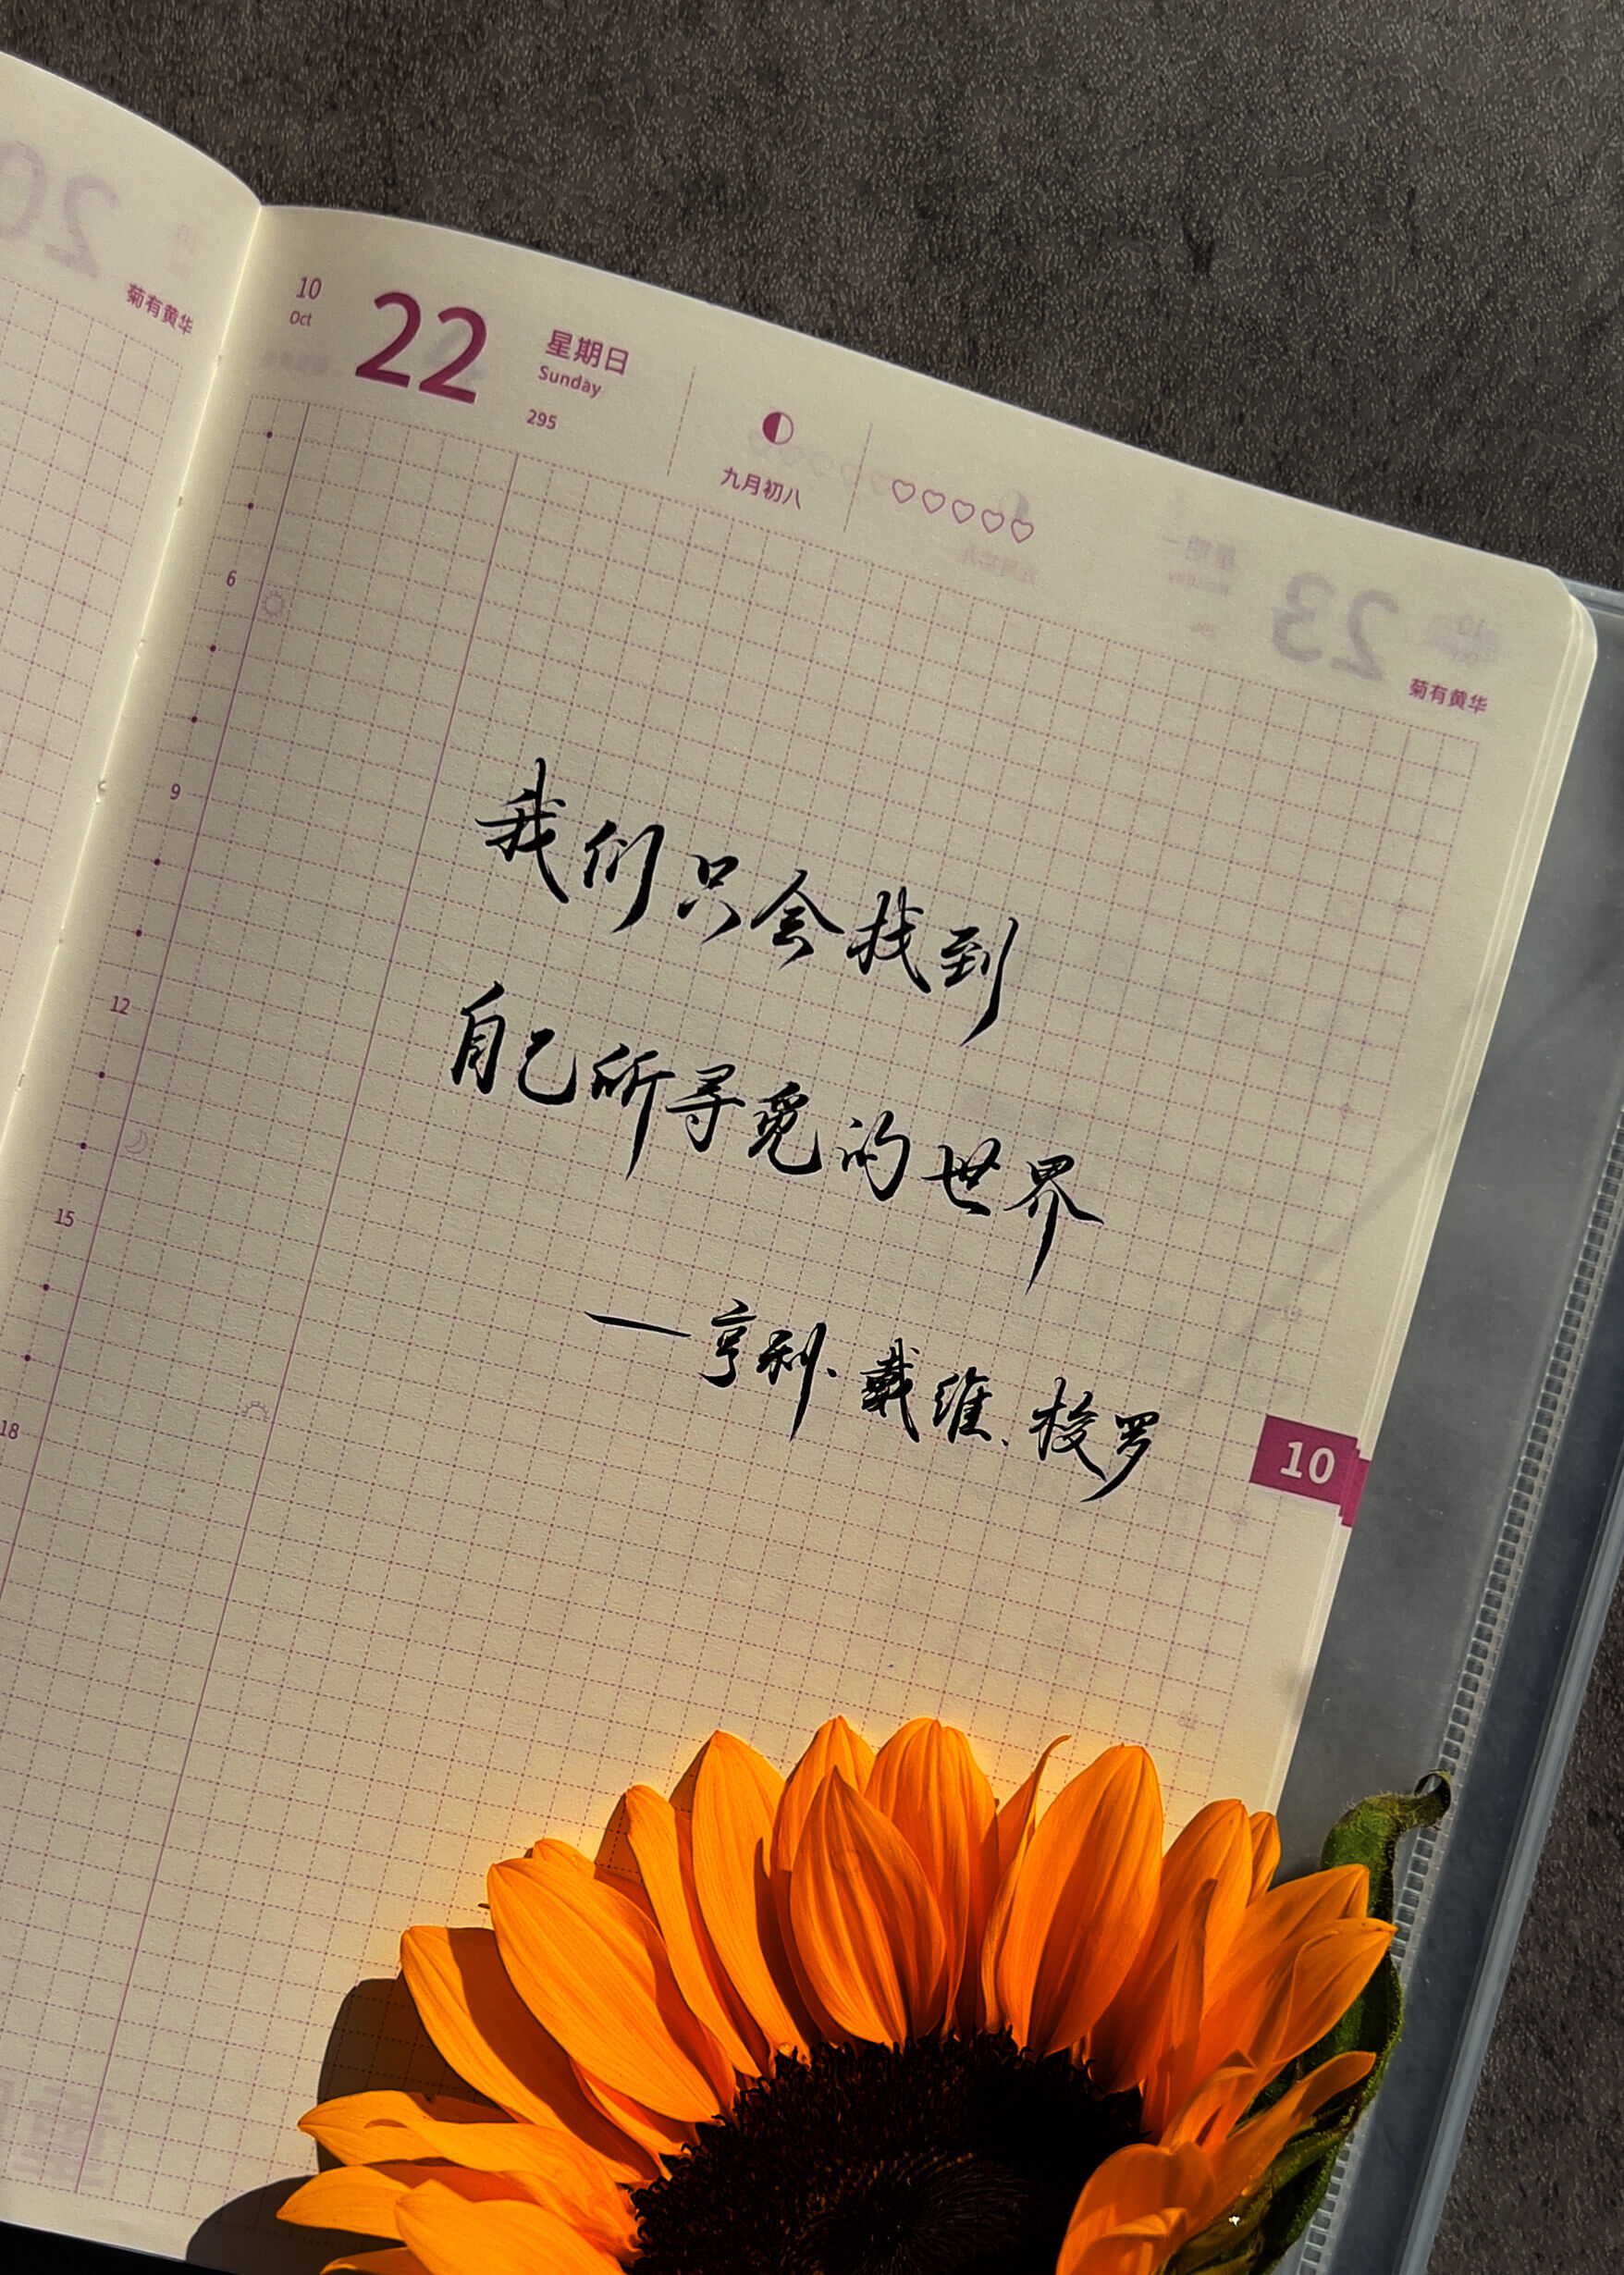 菊有黄华
10
Oct
22
星期日
Sunday
295
九月初八
菊有黄华
6
9
12
15
18
我们只会找到
自己所寻觅的世界
—亨利·戴维·梭罗
10